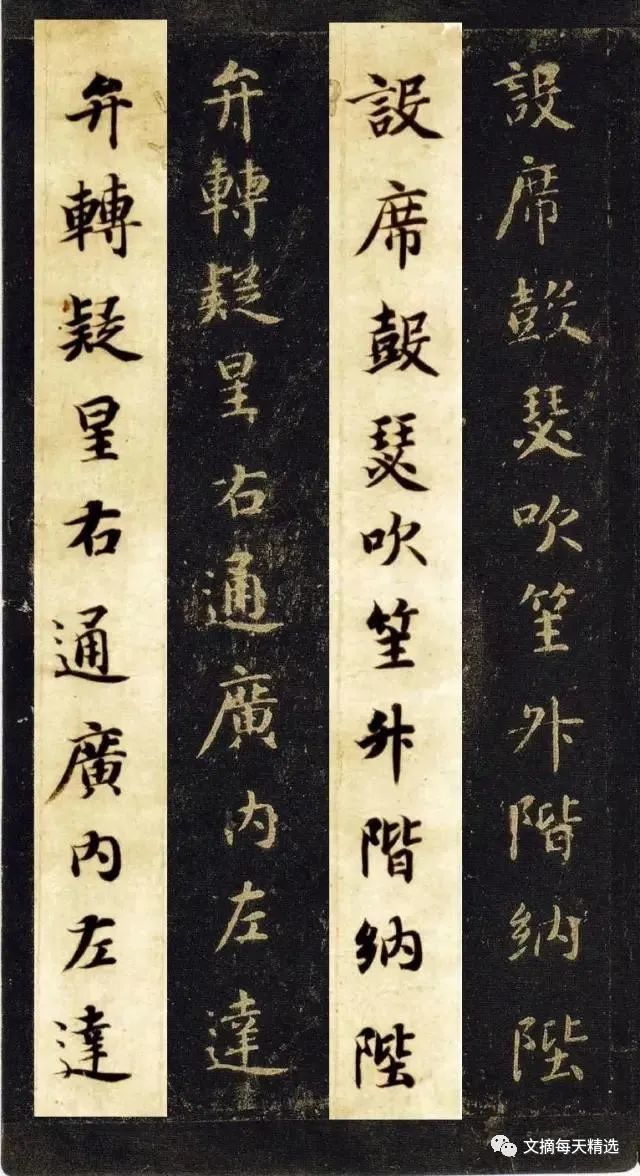 設席鼓瑟吹笙升階納陛
設席鼓瑟吹笙升階納陛
弁轉疑星右通廣內左達
弁轉疑星右通廣內左達
文摘每天精选